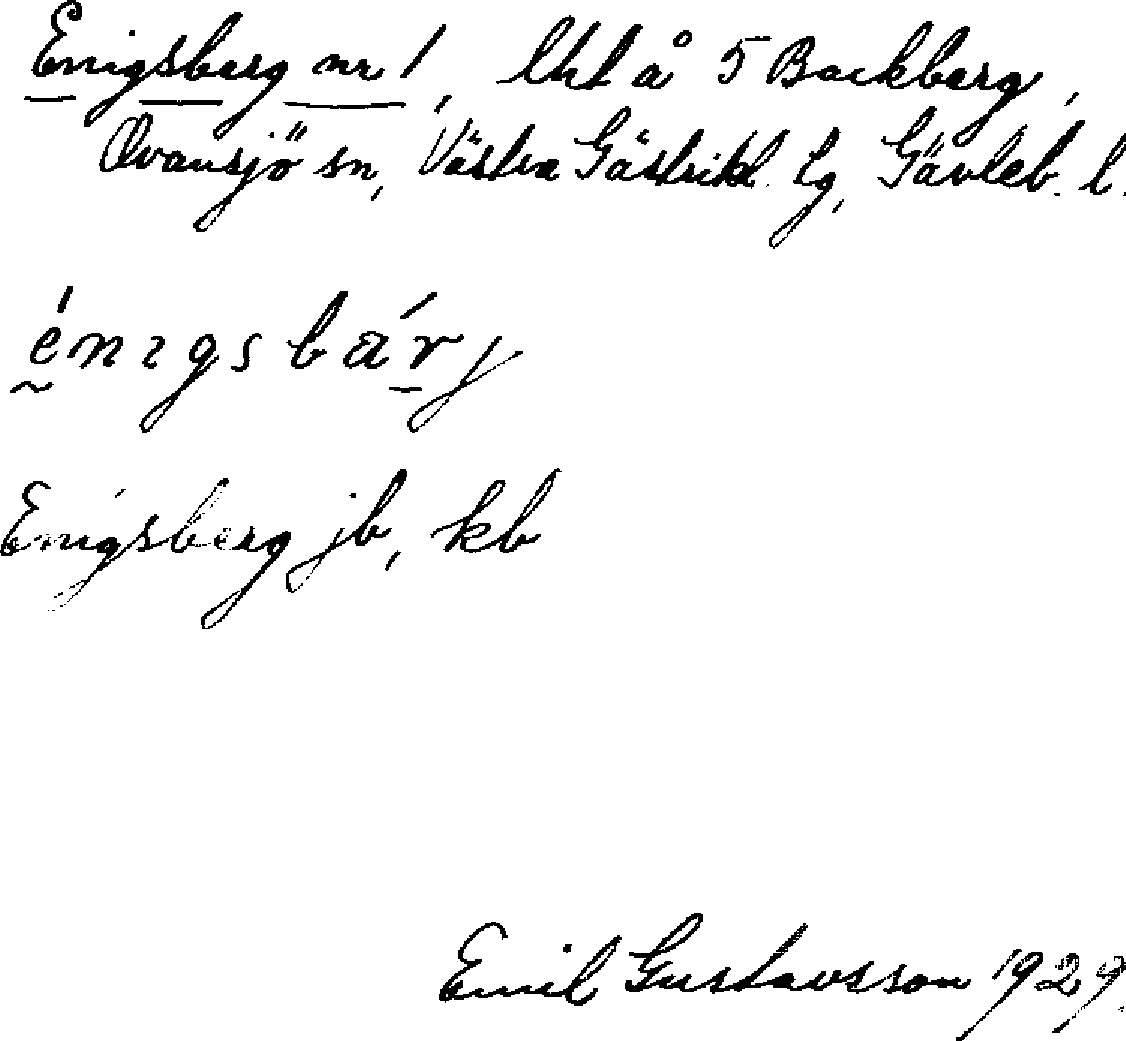 Enigsberg nr 1, lht å 5 Backberg,
Ovansjö sn, Västra Gästrikl. tg, Gävleb. l.
énıgsbárj
Enigsberg jb, kb
Emil Gustavsson 1929.